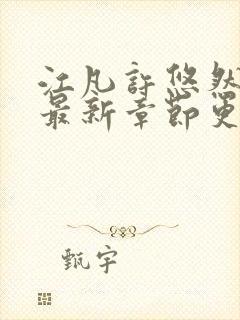 江凡许悠然
最新章节更
甄宇